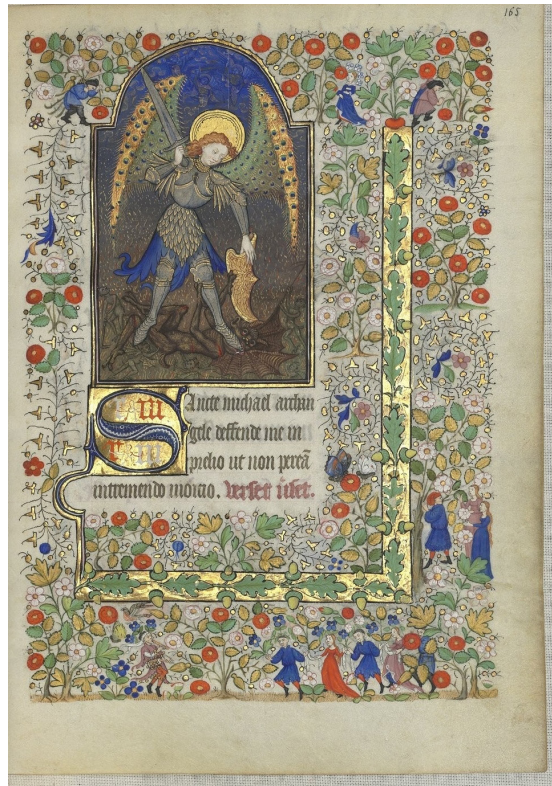 165
Sancte michael archan
gele deffende me in
prelio ut non pereā
intremendo iudicio.